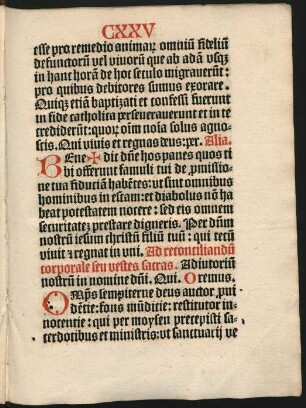 CXXV
esse pro remedio animaꝝ omniū fideliū
defunctorū vel viuorū que ab adā vsqꝫ
in hanc horā de hoc seculo migrauerūt:
pro quibus debitores sumus exorare.
Quiqꝫ etiā baptizati et confessi fuerunt
in fide catholica perseuerauerunt et in te
crediderūt: quoꝝ oīm noīa solus agno⸗
scis. Qui viuis et regnas deus: per. Alia.
BEne✠dic dn̄e hos panes quos ti
bi offerunt famuli tui de ꝓmissio⸗
ne tua fiduciā habētes: vt sint omnibus
hominibus in escam: et diabolus nō ha
beat potestatem nocere: sed eis omnem
securitatē prestare digneris. Per dūm
nostrū iesum christū filiū tuū: qui tecū
viuit ⁊ regnat in vni. Ad reconciliandū
corporale seu vestes sacras. Adiutoriū
nostrū in nomine dn̄i. Qui. Oremus.
OMp̄s sempiterne deus auctor ꝓui
dētie: fons mūdicie: restitutor in
nocentie: qui per moysen precepisti sa⸗
cerdotibus et ministris: vt sanctuarij ve